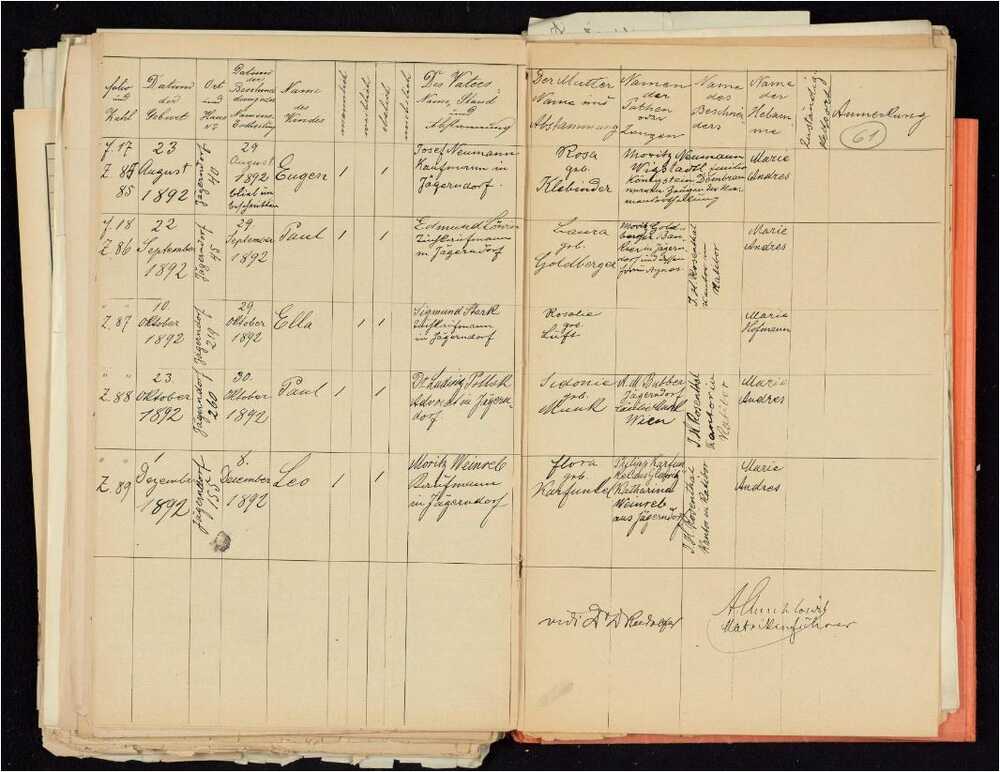 folio
und
Zahl
Datum
der
Geburt
Ort
und
Haus
No
Datum
der
Namens-
Name
des
Kindes
maennlich
weiblich
ehelich
unehelich
Des Vaters
Name, Stand
und
Abstammung
Der Mutter
Name und
Abstammung
Namen
der
Pathen
oder
Zeugen
Name
des
Beschnei
ders
Name
der
Hebam-
me
Zuständig
Anmerkung
61
f. 17
Z. 84
85
23
August
1892
Jägerndorf
40
29
August
1892
Eugen
1
1
Josef Neumann
Kaufmann in
Jägerndorf.
Rosa
geb.
Klebinder
Moritz Neumann
Wigstadtl
Königstein
Marie
Andres
f. 18
Z. 86
22
September
1892
Jägerndorf
29.
September
1892
Paul
1
1
Edmund
in Jägerndorf
Laura
geb.
Goldberger
Moritz Gold-
berger
in Jägern
dorf und dessen
Agnes
J. H. Rosenthal
Kantor in
Ratibor
Marie
Andres
" "
Z. 87
10.
Oktober
1892
Jägerndorf
29.
Oktober
1892
Ella
1
1
Sigmund Stark
in Jägerndorf
Rosalie
geb.
Luft
Marie
Hofmann
" "
Z. 88
23.
Oktober
1892
Jägerndorf
260
30.
Oktober
1892
Paul
1
1
Dr. Ludwig Pollak
Advocat in Jägern-
dorf
Sidonie
geb.
Munk
Jägerndorf
Wien
J. H. Rosenthal
Kantor in
Ratibor
Marie
Andres
Z. 89
1
Dezember
1892
Jägerndorf
8.
Dezember
1892
Leo
1
1
Moritz Weinreb
Kaufmann
in Jägerndorf
Flora
geb.
Karfunkel
Katharina
Weinreb
aus Jägerndorf
J. H. Rosenthal
Kantor in Ratibor
Marie
Andres
vidi Dr
Matrikenführer